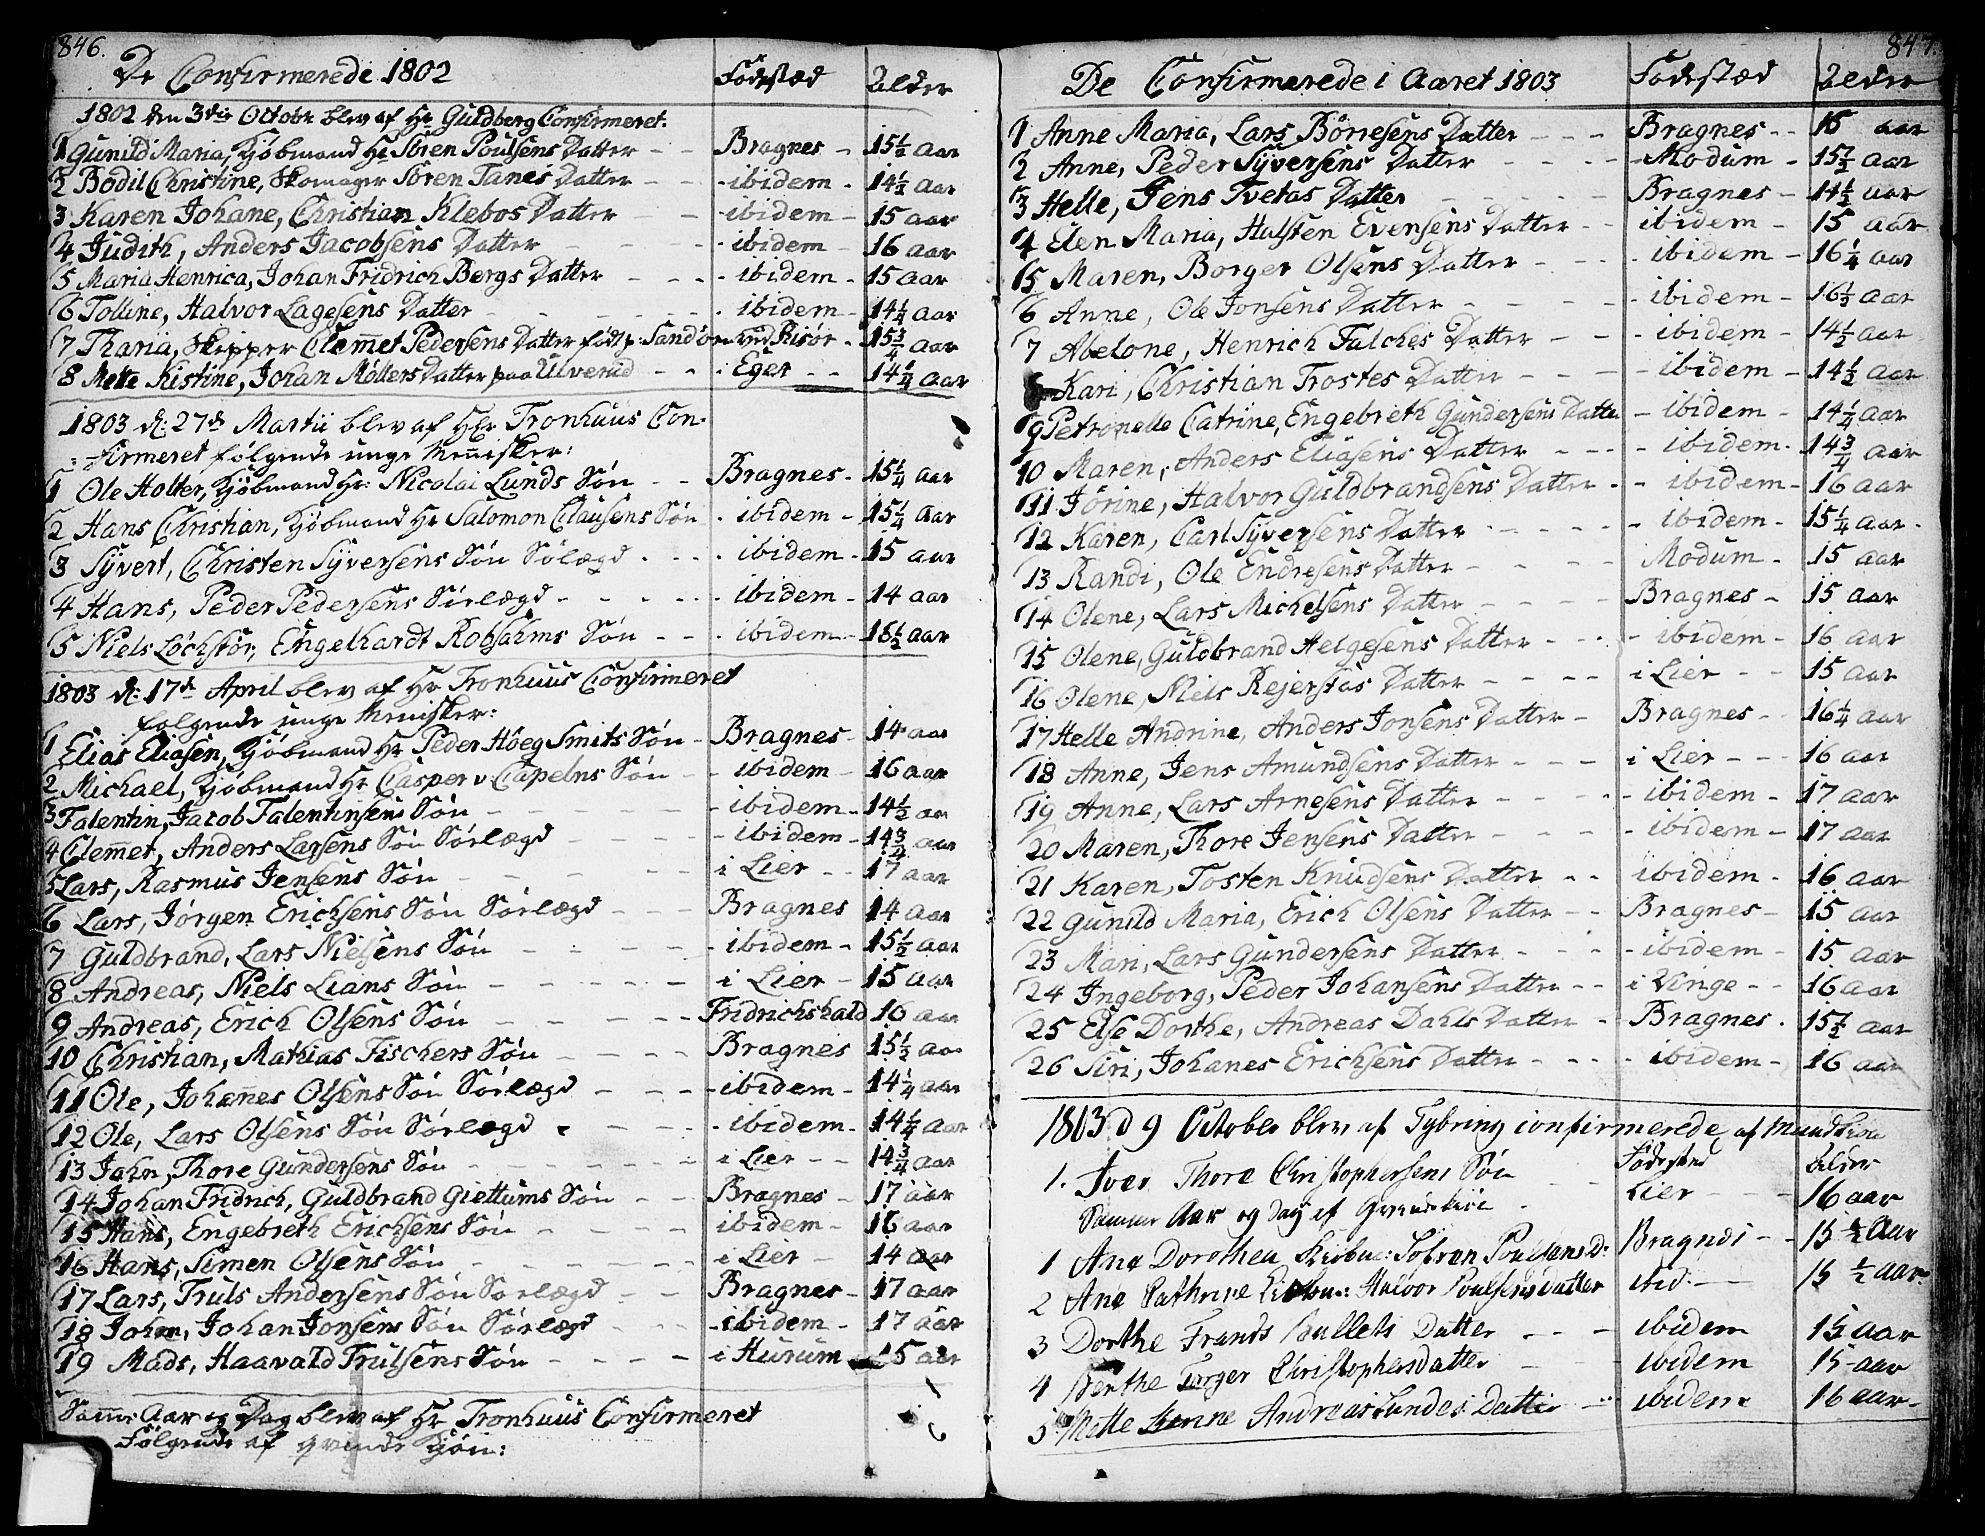 846.
De Confirmerede 1802 Fødestæd Alder
1802 den 3die Octobr blev af Hr Guldberg Confirmeret.
1 Gunild Maria, Kjøbmand Hr Sören Poulsens Datter - - Bragnes - 15½ aar
2 Bodil Christine, Skomager Sören Tanes Datter - - ibidem - 14½ aar
3 Karen Johane, Christian Klebos Datter - - ibidem - 15 aar
4 Judith, Anders Jacobsens Datter - - ibidem - 16 aar
5 Maria Henrica, Johan Fridrich Bergs Datter - - ibidem - 15 aar
6 Tolline, Halvor Lagesens Datter - - ibidem - 14¼ aar
7 Tharia, Skipper Clem̄et Pedersens Datter født p: Sandøen ved Risør - 15¾ aar
8 Mette Kistine, Johan Möllers Datter paa Ulverud - - i Eger - - 14¼ aar
1803 d: 27de Martii blev af HEr Tronhuus Con-
firmeret følgende unge Men̄isker:
1 Ole Holter, Kjøbmand Hr: Nicolai Lunds Sön - - Bragnes - 15¼ aar
2 Hans Christian, Kjøbmand Hr Salomon Clausens Sön - ibidem - 15¼ aar
3 Syvert, Christen Syversens Sön Sölægd - - ibidem - 15 aar
4 Hans, Peder Pedersens Sörlægd - - ibidem - 14 aar
5 Niels Lochstør, Engelhardt Robsahms Sön - - ibidem - 16½ aar
1803 d: 17de April blev af Hr Tronhuus Confirmeret
følgende unge Men̄isker:
1 Elias Eliasen, Kjøbmand Hr Peder Höeg Smits Sön - Bragnes - 14 aar
2 Michael, Kjøbmand Hr Casper v Capelns Sön - - ibidem - 16 aar
3 Falentin, Jacob Falentinsens Sön - - ibidem - 14½ aar
4 Clem̄et, Anders Larsens Sön Sörlægd - - ibidem - 14¾ aar
5 Lars, Rasmus Jensens Sön - - i Lier - - 17 aar
6 Lars, Jörgen Erichsens Sön Sörlægd - - Bragnes 14 aar
7 Guldbrand, Lars Nielsens Sön - - ibidem - 15½ aar
8 Andreas, Niels Lians Sön - - i Lier - 15 aar
9 Andreas, Erich Olsens Sön - - Fridrichshald 16 aar
10 Christian, Mathias Fischers Sön - - Bragnes 15½ aar
11 Ole, Johan̄es Olsens Sön Sörlægd - - ibidem - 14¼ aar
12 Ole, Lars Olsens Sön Sörlægd - - ibidem - 14¼ aar
13 John, Thore Gundersens Sön - - i Lier - - 14¾ aar
14 Johan Fridrich, Guldbrand Giettums Sön - - Bragnes - 17 aar
15 Hans, Engebreth Erichsens Sön - - ibidem - 16 aar
16 Hans, Simen Olsens Sön - - i Lier - 14 aar
17 Lars, Truls Andersens Sön Sörlægd - - Bragnes - 17 aar
18 John, Johan Jonsens Sön Sörlægd - - ibidem - 17 aar
19 Mads, Haavald Trulsens Sön - - i Hurum - 15 aar
Sam̄e Aar og Dag blev af Hr Tronhuus Confirmeret
Følgende af qvinde Kjön:
847.
De Confirmerede i Aaret 1803 Fødestæd Alder
1 Anne Maria, Lars Börresens Datter - - Bragnes - - 15 aar
2 Anne, Peder Syversens Datter - - Modum - 15½ aar
3 Helle, Jens Tvetas Datter - - Bragnes - 14½ aar
4 Elen Maria, Halsten Evensens Datter - - ibidem - 15 aar
5 Maren, Borger Olsens Datter - - ibidem - 16¼ aar
6 Anne, Ole Jonsens Datter - - ibidem - 16½ aar
7 Abelone, Henrich Falches Datter - - ibidem - 14½ aar
8 Kari, Christian Trostes Datter - - ibidem - 14½ aar
9 Petronelle Catrine, Engebreth Gundersens Datter - ibidem - 14¼ aar
10 Maren, Anders Eliasens Datter - - ibidem - 14¾ aar
11 Jörine, Halvor Guldbrandsens Datter - - ibidem - 16 aar
12 Karen, Carl Syversens Datter - - ibidem - 15¼ aar
13 Randi, Ole Endresens Datter - - Modum - 15 aar
14 Olene, Lars Michelsens Datter - - Bragnes - 15 aar
15 Olene, Guldbrand Helgesens Datter - - ibidem - 16 aar
16 Olene, Niels Rejerstas Datter - - i Lier - - 15 aar
17 Helle Andrine, Anders Jonsens Datter - Bragnes - - 16¼ aar
18 Anne, Jens Amundsens Datter - - i Lier - - 16 aar
19 Anne, Lars Arnesens Datter - - ibidem - 17 aar
20 Maren, Thore Jensens Datter - - ibidem - 17 aar
21 Karen, Tosten Knudsens Datter - - ibidem - 16 aar
22 Gunild Maria, Erich Olsens Datter - - Bragnes - 15 aar
23 Mari, Lars Gundersens Datter - - ibidem - 15 aar
24 Ingeborg, Peder Johansens Datter - - i Vinge - - 16 aar
25 Else Dorthe, Andreas Dahls Datter - Bragnes. 15½ aar
26 Siri, Johanes Erichsens Datter - - ibidem - 16 aar
1803 d 9 October blev af Tybring confirmerede af Mandkiön
Fødested Alder
1. Iver Thore Christophersens Sön - - Lier - - 16 aar
Samme Aar og Dag af Qvindekiön
1 Ane Dorothea Sören Poulsens D: Bragnes - - 15½ Aar
2 Ane Cathrine Halvor Poulsens Datter ibid: - 15½ aar
3 Dorthe Frands Datter - - ibidem 15½ aar
4 Berthe Torger Christophersdatter - ibidem 15 aar
5 Mette Andreas Lundes Datter - ibidem 16 aar